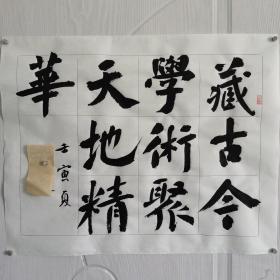 藏古今
學術聚
天地精
華
壬寅夏